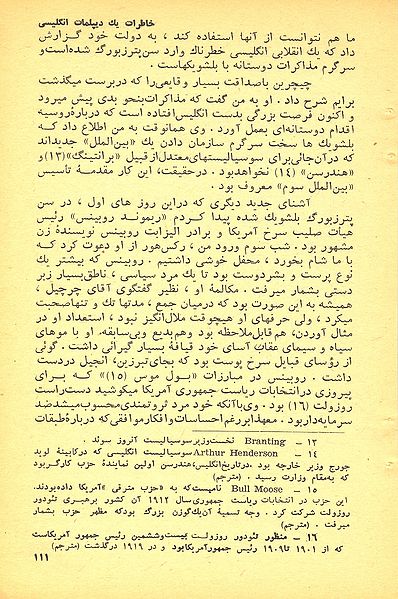 خاطرات یك دیپلمات انگلیسی
ما هم نتوانست از آنها استفاده کند ، به دولت خود گزارش
داد که یك انقلابی انگلیسی خطرناك وارد سن‌پترزبورگ شده‌است‌و
سرگرم مذاکرات دوستانه با بلشویکهاست .
چیچرین باصداقت بسیار وقایعی‌را که‌دربرست میگذشت
برایم شرح داد . او به من گفت که مذاکرات‌بنحو بدی پیش میرود
و اکنون فرصت بزرگی بدست انگلیس‌افتاده است که درباره‌روسیه
اقدام دوستانه‌ای بعمل آورد . وی همانوقت به من اطلاع داد کـه
بلشویك ها سخت سرگرم سازمان دادن یك «بین‌الملل» جدیداند
که درآن‌جائی‌برای سوسیالیستهای‌معتدل‌از قبیل «برانتینگ»(۱۳)و
«هندرسن» (۱۴) نخواهدبود . درحقیقت، این کار مقدمـهٔ تاسیس
«بین‌الملل سوم» معروف بود .
آشنای جدید دیگری که دراین روز های اول ، در سن
پترزبورگ بلشویك شده پیدا کـردم «ریموند روبینس» رئیس
هیأت صلیب سرخ آمریکا و برادر الیزابت روبینس نویسندهٔ زن
مشهور بود . شب سوم ورود من ، رکس‌هور از او دعوت کرد کـه
با ما شام بخورد ، محفل خوشی داشتیم . روبینس که بیشتر یك
نوع پرست و بشردوست بود تا یك مرد سیاسی ، ناطق‌بسیار زبر
دستی بشمار میرفت . مکالمهٔ او ، نظیر گفتگوی آقای چرچیل ،
همیشه به این صورت بود که درمیان جمع ، مدتها تك و تنهاصحبت
میکرد ، ولی حرفهای او هیچوقت ملال‌انگیز نبود ، استعداد او در
مثال آوردن، هم‌قابل‌ملاحظه بود وهم‌بدیع وبی‌سابقه. او با موهای
سیاه و سیمای عقاب آسای خود قیافهٔ بسیار گیرائی داشت . گوئی
از رؤسای قبایل سرخ پوست بود که بجای‌تبرزین، انجیل دردست
داشت . روبینس در مبارزات «بول موس (۱۵)» کـه بـرای
پیروزی درانتخابات ریاست جمهوری آمریکا میکوشید دست‌راست
روزولت (۱۶) بود . وی‌باآنکه خود مرد ثروتمندی‌محسوب‌میشدضد
سرمایه‌داربود . معهذابررغم‌احساسات‌وافکارموافقی‌که درباره‌طبقات
۱۳ ــ Branting نخست‌وزیر سوسیالیست آنروز سوئد .
۱۴ ــ Arthur Henderson سوسیالیست انگلیسی که درکابینهٔ لوید
جورج وزیر خارجه بود .درتاریخ‌انگلیس،هندرسن اولین نمایندهٔ حزب کارگربود
که به‌مقام وزارت رسید . (مترجم)
۱۵ ــ Bull Moose نامیست‌که به «حزب مترقی »آمریکا داده‌بودند.
این حزب در انتخابات ریاست جمهوری‌سال ۱۹۱۲ آن کشور برهبـری تئودور
روزولت شرکت کرد . وجه تسمیهٔ آن‌یك‌گوزن بزرگ بودکه مظهر حزب بشمار
میرفت . (مترجم)
۱۶ ــ منظور تئودور روزولـت بیست‌وششمین رئیس جمهور آمریکاست
که از ۱۹۰۱ تا۱۹۰۹ رئیس جمهورآمریکابود و در ۱۹۱۹ درگذشت (مترجم)
۱۱۱